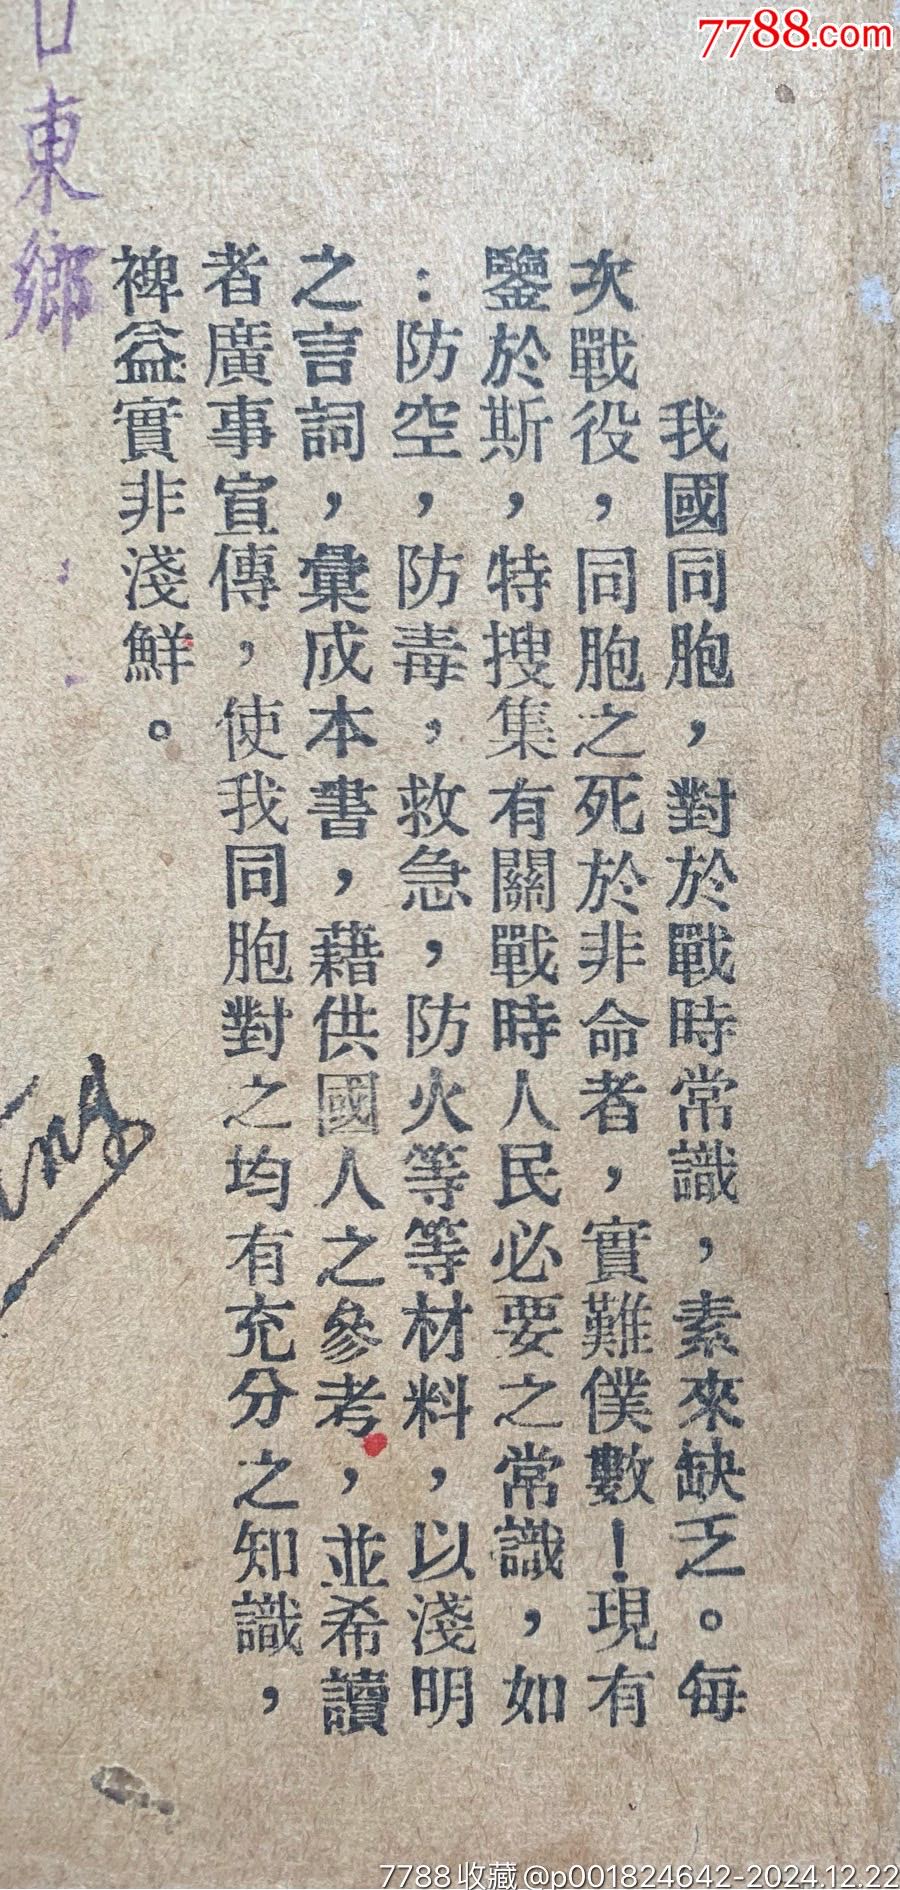 7788.com
我國同胞，對於戰時常識，素來缺乏。每
次戰役，同胞之死於非命者，實難僕數！現有
鑒於斯，特搜集有關戰時人民必要之常識，如
：防空，防毒，救急，防火等等材料，以淺明
之言詞，彙成本書，藉供國人之參考，並希讀
者廣事宣傳，使我同胞對之均有充分之知識，
裨益實非淺鮮。
東鄉
7788收藏@p001824642-2024.12.22